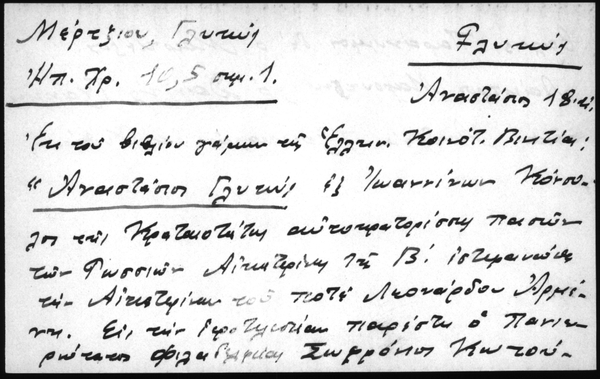 Μέρτζιου, Γλυκύς
Γλυκύς
Ἠπ. Χρ. 10, 5 σημ. 1.
Ἀναστάσιος 18
Ἐκ τοῦ βιβλίου γάμων τῆς Ἑλλην. Κοινότ. Βενετίας:
"Ἀναστάσιος Γλυκύς ἐξ Ἰωαννίνων Κόνσου-
λος τῆς Κραταιοτάτης αὐτοκρατορίσσης πασῶν
τῶν Ρωσσιῶν Αἰκατερίνης τῆς Β! ἐστεφανώθη
τὴν Αἰκατερίναν τοῦ ποτέ Λεονάρδου Ἀρμέ-
νη. Εἰς τὴν ἱεροτελεστίαν παρέστη ὁ Πανιε-
ρώτατος Φιλαδελφείας Σωφρόνιος Κουτού-